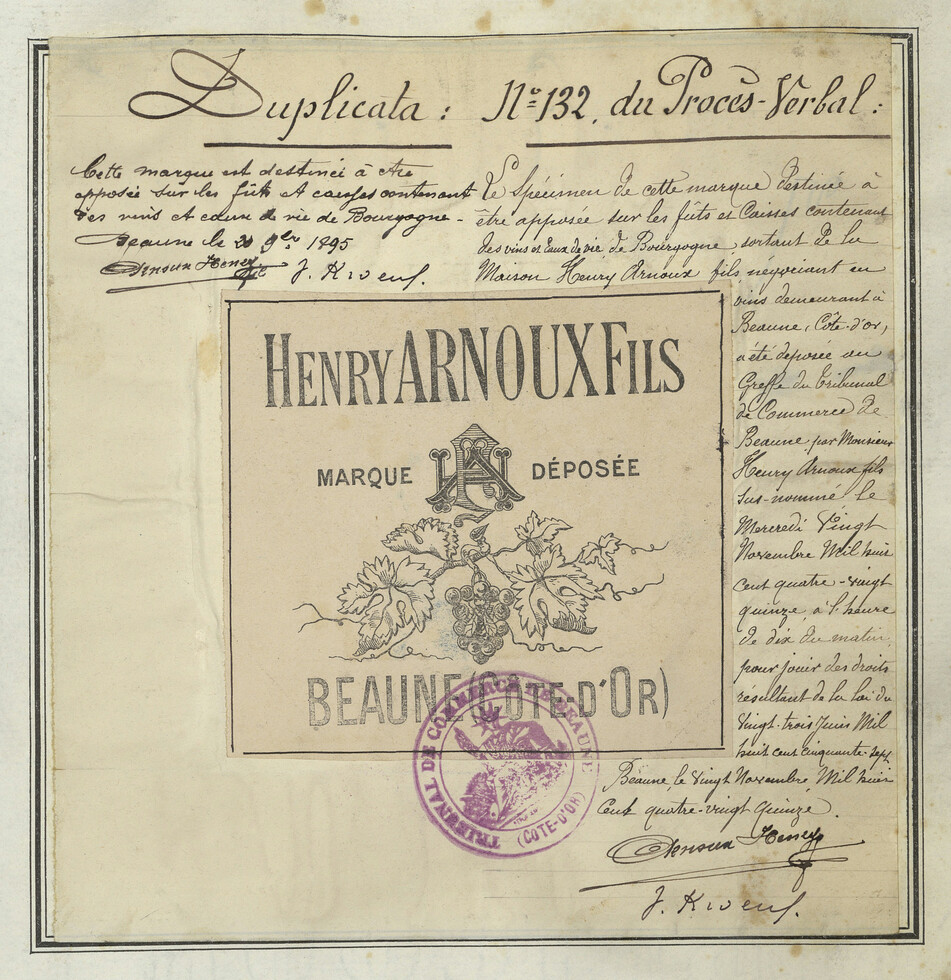 Duplicata : N° 132, du Procès-Verbal :
Cette marque est destinée à être
apposée sur les fûts et caisses contenant
des vins et eaux de vie de Bourgogne -
Beaune le 20 9bre 1895
Arnoux Henry fils
Le Spécimen de cette marque destinée à
être apposée sur les fûts et Caisses contenant
des vins et Eaux de vie, de Bourgogne sortant de la
Maison Henry Arnoux fils négociant en
vins demeurant à
Beaune, Côte-d'or,
a été déposée au
Greffe du tribunal
de Commerce de
Beaune par Monsieur
Henry Arnoux fils
sus-nommé le
Mercredi Vingt
Novembre Mil huit
cent quatre-vingt
quinze, à l'heure
de dix du matin,
pour jouir des droits
résultant de la loi du
Vingt-trois Juin Mil
huit cent cinquante-sept
Beaune, le Vingt Novembre, Mil huit
Cent quatre-vingt Quinze.
Arnoux Henry
HENRY ARNOUX FILS
MARQUE HA DÉPOSÉE
BEAUNE (CÔTE-D'OR)
TRIBUNAL DE COMMERCE DE BEAUNE
(COTE-D'OR)